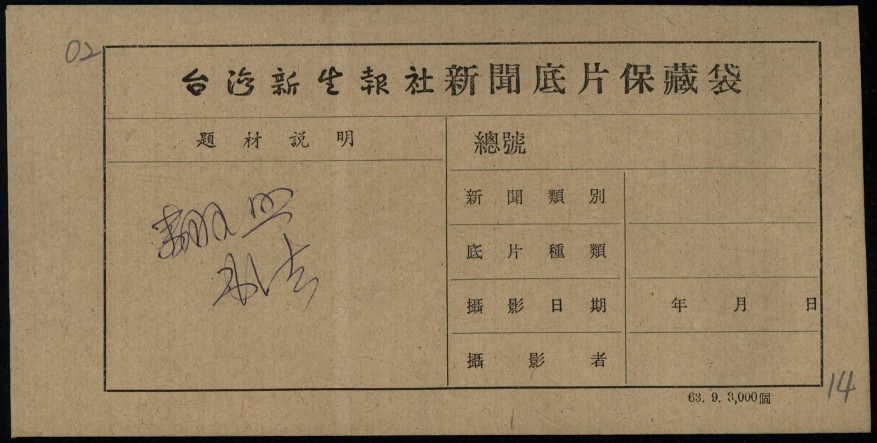 02
台灣新生報社新聞底片保藏袋
題材說明
總號
新聞類別
底片種類
攝影日期 年 月 日
攝影者
翻照
14
63. 9. 3,000個